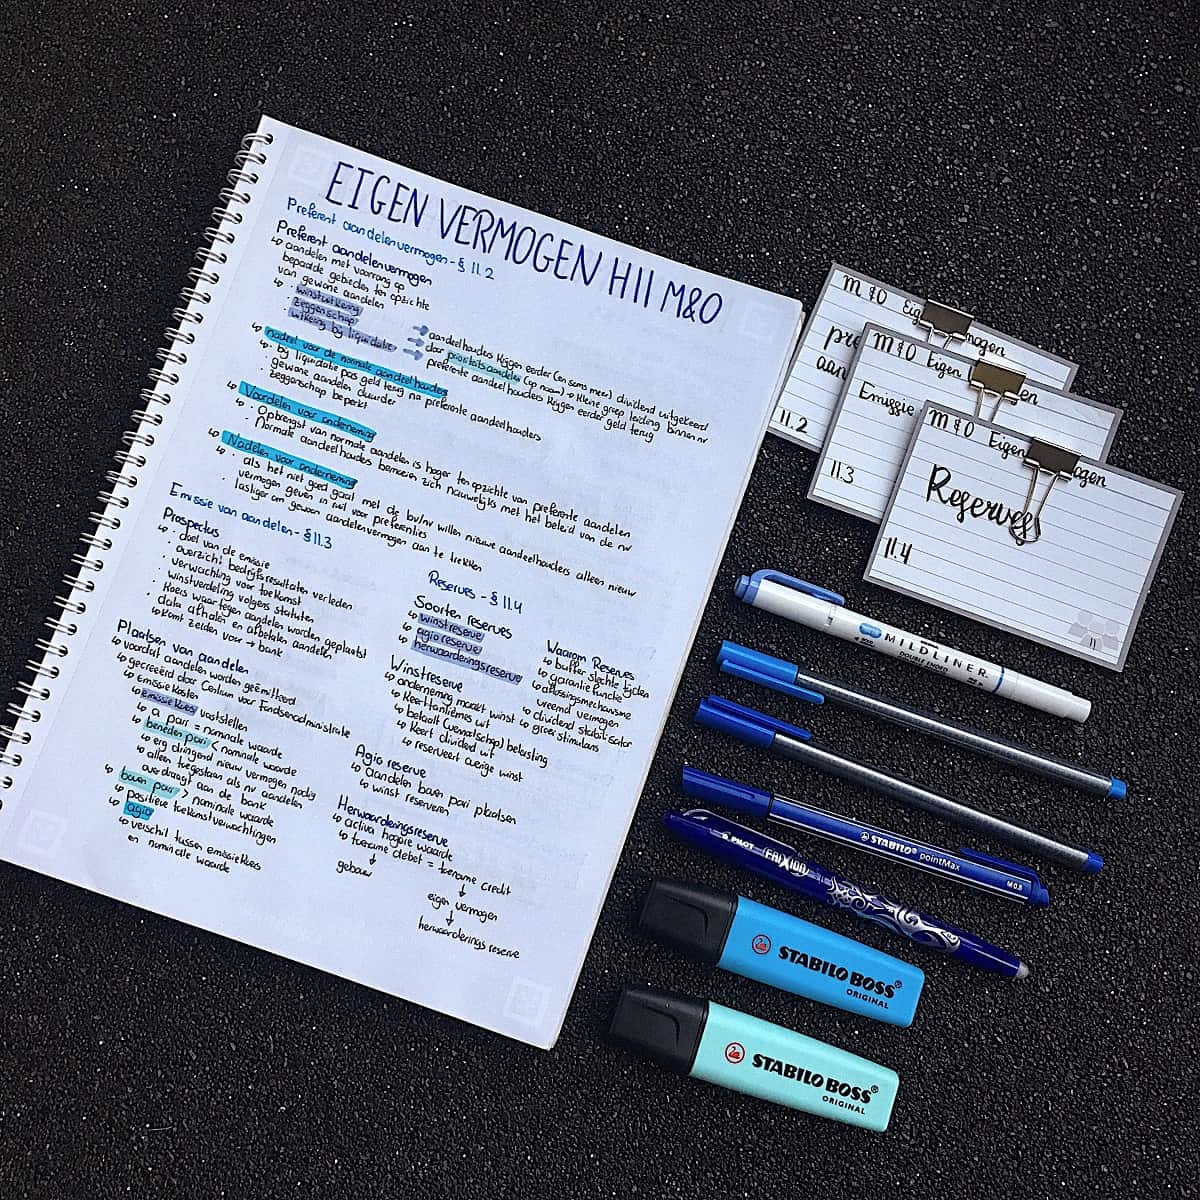 EIGEN VERMOGEN H11 M&O
Preferent aandelenvermogen - § 11.2
Preferent aandelenvermogen
↳ aandelen met voorrang op
bepaalde gebieden ten opzichte
van gewone aandelen
↳ · winstuitkering
· zeggenschap
· uitkering bij liquidatie
→ aandeelhouders krijgen eerder (en soms meer) dividend uitgekeerd
→ door prioriteitsaandelen (op naam) → kleine groep leiding binnen nv
→ preferente aandeelhouders krijgen eerder geld terug
↳ nadeel voor de normale aandeelhouders
· bij liquidatie pas geld terug na preferente aandeelhouders
· gewone aandelen duurder
· zeggenschap beperkt
↳ Voordelen voor onderneming
· Opbrengst van normale aandelen is hoger ten opzichte van preferente aandelen
· Normale aandeelhouders bemoeien zich nauwelijks met het beleid van de nv
↳ Nadelen voor onderneming
· als het niet goed gaat met de bv/nv willen nieuwe aandeelhouders alleen nieuw
vermogen geven in ruil voor preferenties
· lastiger om gewoon aandelenvermogen aan te trekken
Emissie van aandelen - § 11.3
Prospectus
· doel van de emissie
· overzicht bedrijfsresultaten verleden
· verwachting voor toekomst
· winstverdeling volgens statuten
· koers waartegen aandelen worden geplaatst
· data afhalen en afbetalen aandelen
↳ komt zeiden voor → bank
Plaatsen van aandelen
↳ voordat aandelen worden geëmitteerd
↳ gecreëerd door Centrum voor Fondsenadministratie
↳ emissiekosten
↳ emissiekoers vaststellen
↳ a pari = nominale waarde
↳ beneden pari < nominale waarde
↳ erg dringend nieuw vermogen nodig
↳ alleen toegestaan als nv aandelen
overdraagt aan de bank
↳ boven pari > nominale waarde
↳ positieve toekomstverwachtingen
↳ agio
↳ verschil tussen emissiekoers
en nominale waarde
Reserves - § 11.4
Soorten reserves
↳ winstreserve
↳ agio reserve
↳ herwaarderingsreserve
Winstreserve
↳ onderneming maakt winst
↳ keert tantièmes uit
↳ betaalt (vennootschap) belasting
↳ keert dividend uit
↳ reserveert overige winst
Waarom Reserves
↳ buffer slechte tijden
↳ garantie functie
↳ aflossingsmechanisme
vreemd vermogen
↳ dividend stabilisator
↳ groei stimulans
Agio reserve
↳ Aandelen boven pari plaatsen
↳ winst reserveren
Herwaarderingsreserve
↳ activa hogere waarde
↳ toename debet = toename credit
↓
gebouw
↓
eigen vermogen
↓
herwaarderings reserve
M&O Eigen
11.2
M&O Eigen
Emissie
11.3
M&O Eigen
Reserves
11.4
11
MILDLINER
DOUBLE ENDED
STABILO pointMax
M 0.8
PILOT FRIXION
STABILO BOSS®
ORIGINAL
STABILO BOSS®
ORIGINAL